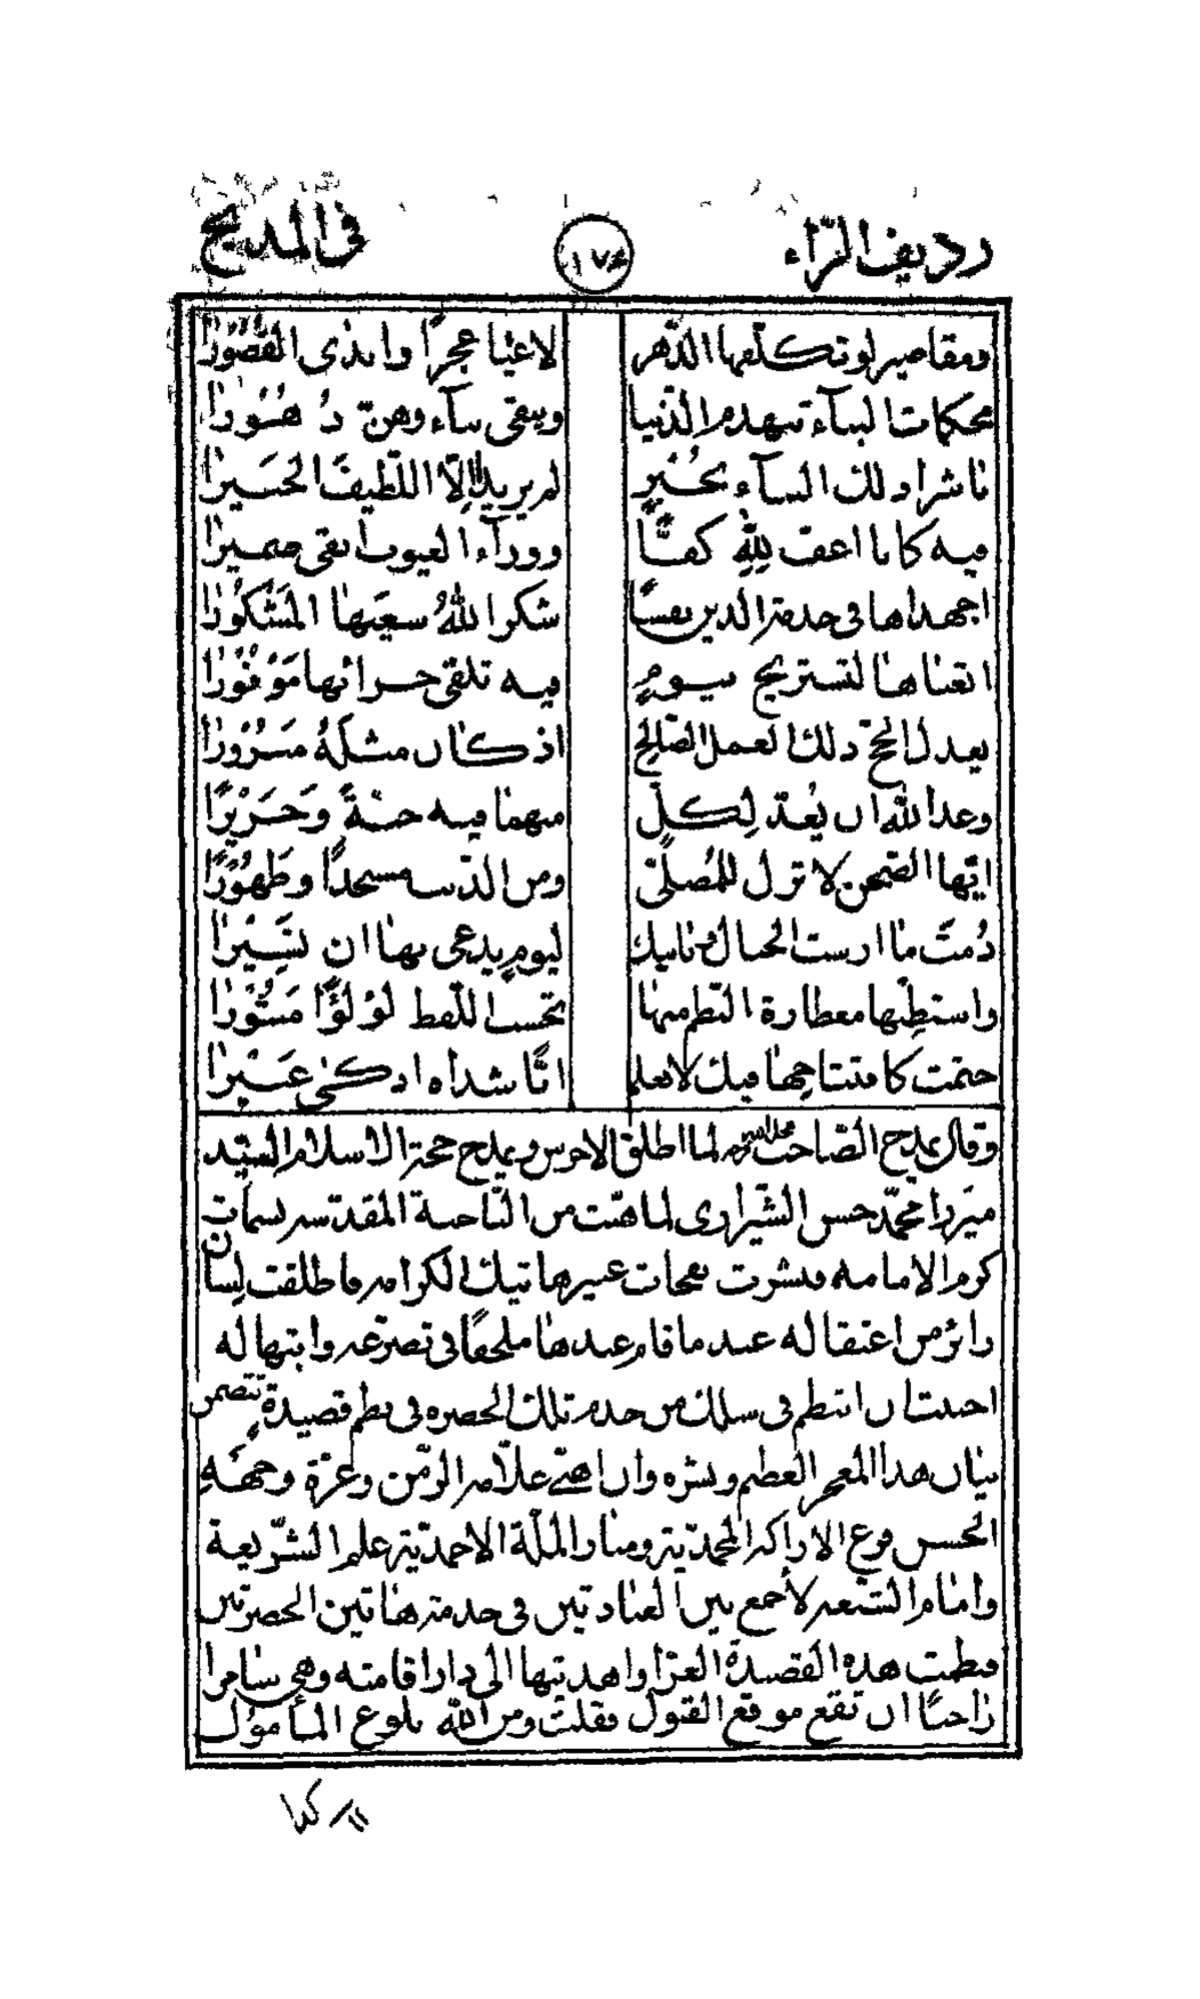 رديف الرّاء ١٧٤ في المديح
ومقاصير لو تكلّفها الدّهر لاعيا عجزًا وابدى القُصُورا
محكمات البناء تنهدم الدّنيا ويبقى بناء وهنّ دُهُورا
ناشرا ذلك البناء لم يريد إلّا اللّطيفَ الخَبيرا
فيه كانا اعفّ لِلّهِ كفًّا ووراء الغيوب انقى ضميرا
اجهداها في خدمة الدين نفسًا شكر اللهُ سعيَها المَشْكُورا
اتعباها لتستريح بيومٍ فيه تلقى جزائها مَوْفُورا
ذلك العمل الصّالح اذ كان مثلَهُ مَبْرُورا
وعد الله ان يُعدّ لِكلّ منهما فيه جنّةً وَحَرِيْرًا
ايّها الصّحن لا تزل للمُصلّى ومن الذّنب مسجدًا وطَهُوْرًا
دُمتَ ما ارست الجبال ليومٍ يدعى بها ان تَسِيْرا
واستطِبْها معطارة النّظم منها تحسب اللّفظ لؤلؤًا مَنْثُوْرا
ختمت كافتتاحها فيك لا نعلم ايًّا شذاه اذكى عَبِيْرا
وقال يمدح الصّاحب لما اطلق الاخرس ويمدح حجّة الاسلام السيّد
ميرزا محمّد حسن الشّيرازى لما هبّت من النّاحية المقدّسة نسمات
كرم الامامه فنشرت نفحات عبيرها تيك الكرامه فاطلقت لِسان
زائر من اعتقاله عند ما قام عندها ملحفًا في تضرّعه وابتهاله
احببت ان انتظم في سلك من خدم تلك الحضره في نظم قصيدةٍ تتضمن
بيان هذا المعجز العظيم ونشره وان اهنّي علّامة الزّمن وغرّة وجههِ
الحسن فرع الاراكة المحمّديّة ومنار الملّة الاحمديّة علم الشّريعة
وامام الشّيعه لأجمع بين العبادتين في خدمة هاتين الحضرتين
فنظمت هذه القصيدة الغرّا واهديتها الى دار اقامته وهى سامرا
راجيًا ان تقع موقع القبول فقلت ومن الله بلوغ المأمول